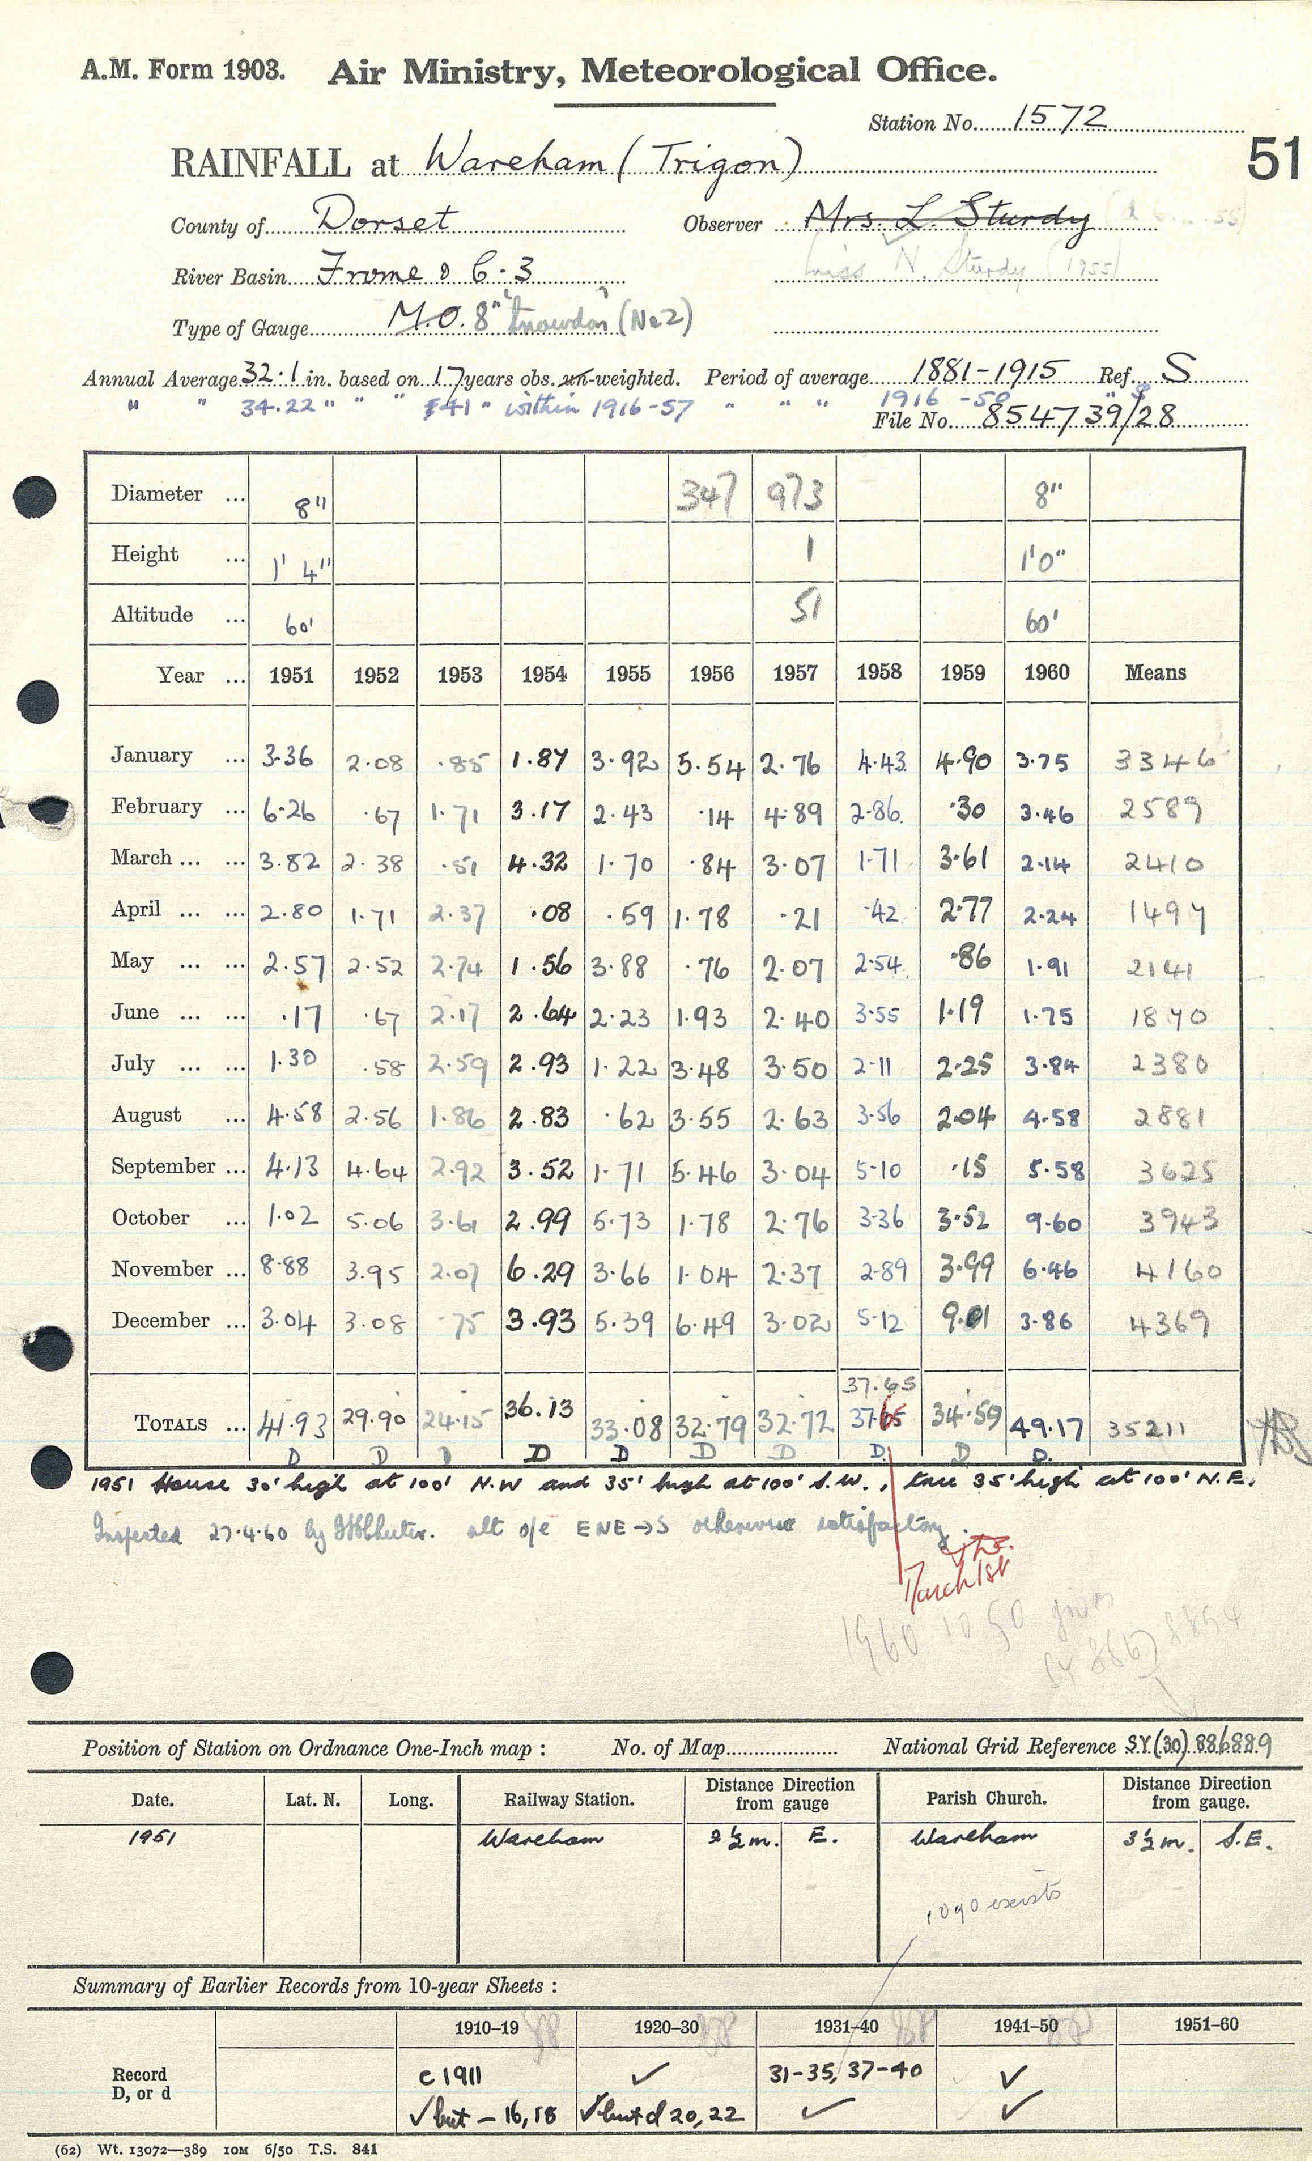 A.M. Form 1903. Air Ministry, Meteorological Office.
Station No. 1572
51
RAINFALL at Wareham (Trigon)
County of Dorset Observer Mrs. L. Sturdy
River Basin Frome & C.3 Miss N. Sturdy (1955)
Type of Gauge M.O. 8" "Snowdon" (No2)
Annual Average 32.1 in. based on 17 years obs. un-weighted. Period of average 1881-1915 Ref. S
" " 34.22 " " " 41 " within 1916-57 " " " 1916-50 " S
File No. 854739/28
Diameter ... 8" 347 973 8"
Height ... 1' 4" 1 1'0"
Altitude ... 60' 51 60'
Year ... 1951 1952 1953 1954 1955 1956 1957 1958 1959 1960 Means
January ... 3.36 2.08 .85 1.87 3.92 5.54 2.76 4.43 4.90 3.75 3346
February ... 6.26 .67 1.71 3.17 2.43 .14 4.89 2.86 .30 3.46 2589
March ... ... 3.82 2.38 .51 4.32 1.70 .84 3.07 1.71 3.61 2.14 2410
April ... ... 2.80 1.71 2.37 .08 .59 1.78 .21 .42 2.77 2.24 1497
May ... ... 2.57 2.52 2.74 1.56 3.88 .76 2.07 2.54 .86 1.91 2141
June ... ... .17 .67 2.17 2.64 2.23 1.93 2.40 3.55 1.19 1.75 1870
July ... ... 1.30 .58 2.59 2.93 1.22 3.48 3.50 2.11 2.25 3.84 2380
August ... 4.58 2.56 1.86 2.83 .62 3.55 2.63 3.56 2.04 4.58 2881
September ... 4.13 4.64 2.92 3.52 1.71 5.46 3.04 5.10 .15 5.58 3625
October ... 1.02 5.06 3.61 2.99 5.73 1.78 2.76 3.36 3.52 9.60 3943
November ... 8.88 3.95 2.07 6.29 3.66 1.04 2.37 2.89 3.99 6.46 4160
December ... 3.04 3.08 .75 3.93 5.39 6.49 3.02 5.12 9.01 3.86 4369
37.65
TOTALS ... 41.93 29.90 24.15 36.13 33.08 32.79 32.72 37.65 34.59 49.17 35211
D D D D D D D D. D D.
1951 House 30' high at 100' N.W and 35' high at 100' S.W., tree 35' high at 100' N.E.
Inspected 27.4.60 by alt o/e ENE→S otherwise satisfactory.
March 1st
1960 10 50 gives
SY 886 8894
Position of Station on Ordnance One-Inch map : No. of Map National Grid Reference SY(30) 886889
Date. Lat. N. Long. Railway Station. Distance from gauge Direction Parish Church. Distance from gauge. Direction
1951 Wareham 2½m. E. Wareham 3½m. S.E.
1090 exists
Summary of Earlier Records from 10-year Sheets :
1910-19 1920-30 1931-40 1941-50 1951-60
Record c 1911 ✓ 31-35, 37-40 ✓
D, or d ✓ but - 16, 18 ✓ but d 20, 22 ✓ ✓
(62) Wt. 13072—389 10M 6/50 T.S. 841